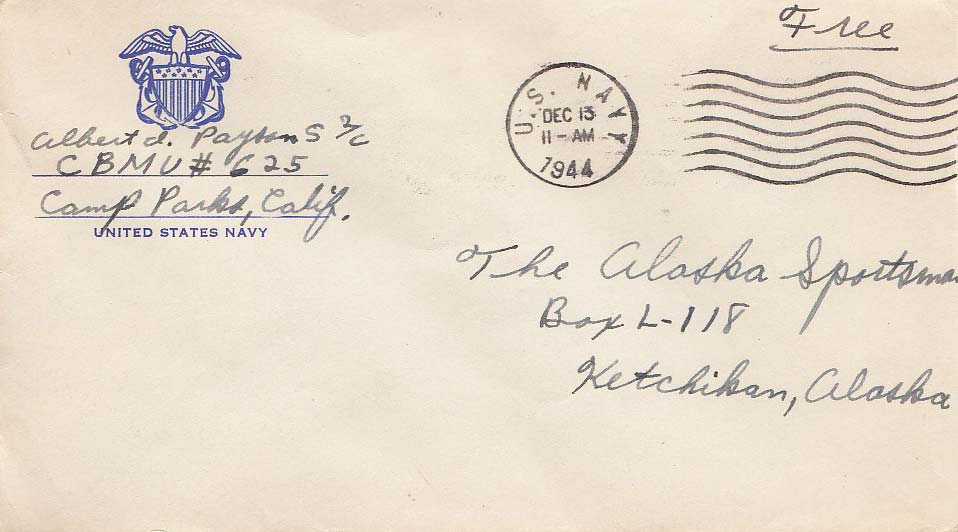 Free
U.S. NAVY
DEC 13
11-AM
1944
Albert d. Payson S 2/c
CBMU# 625
Camp Parks, Calif.
UNITED STATES NAVY
The Alaska Sportsman
Box L-118
Ketchikan, Alaska